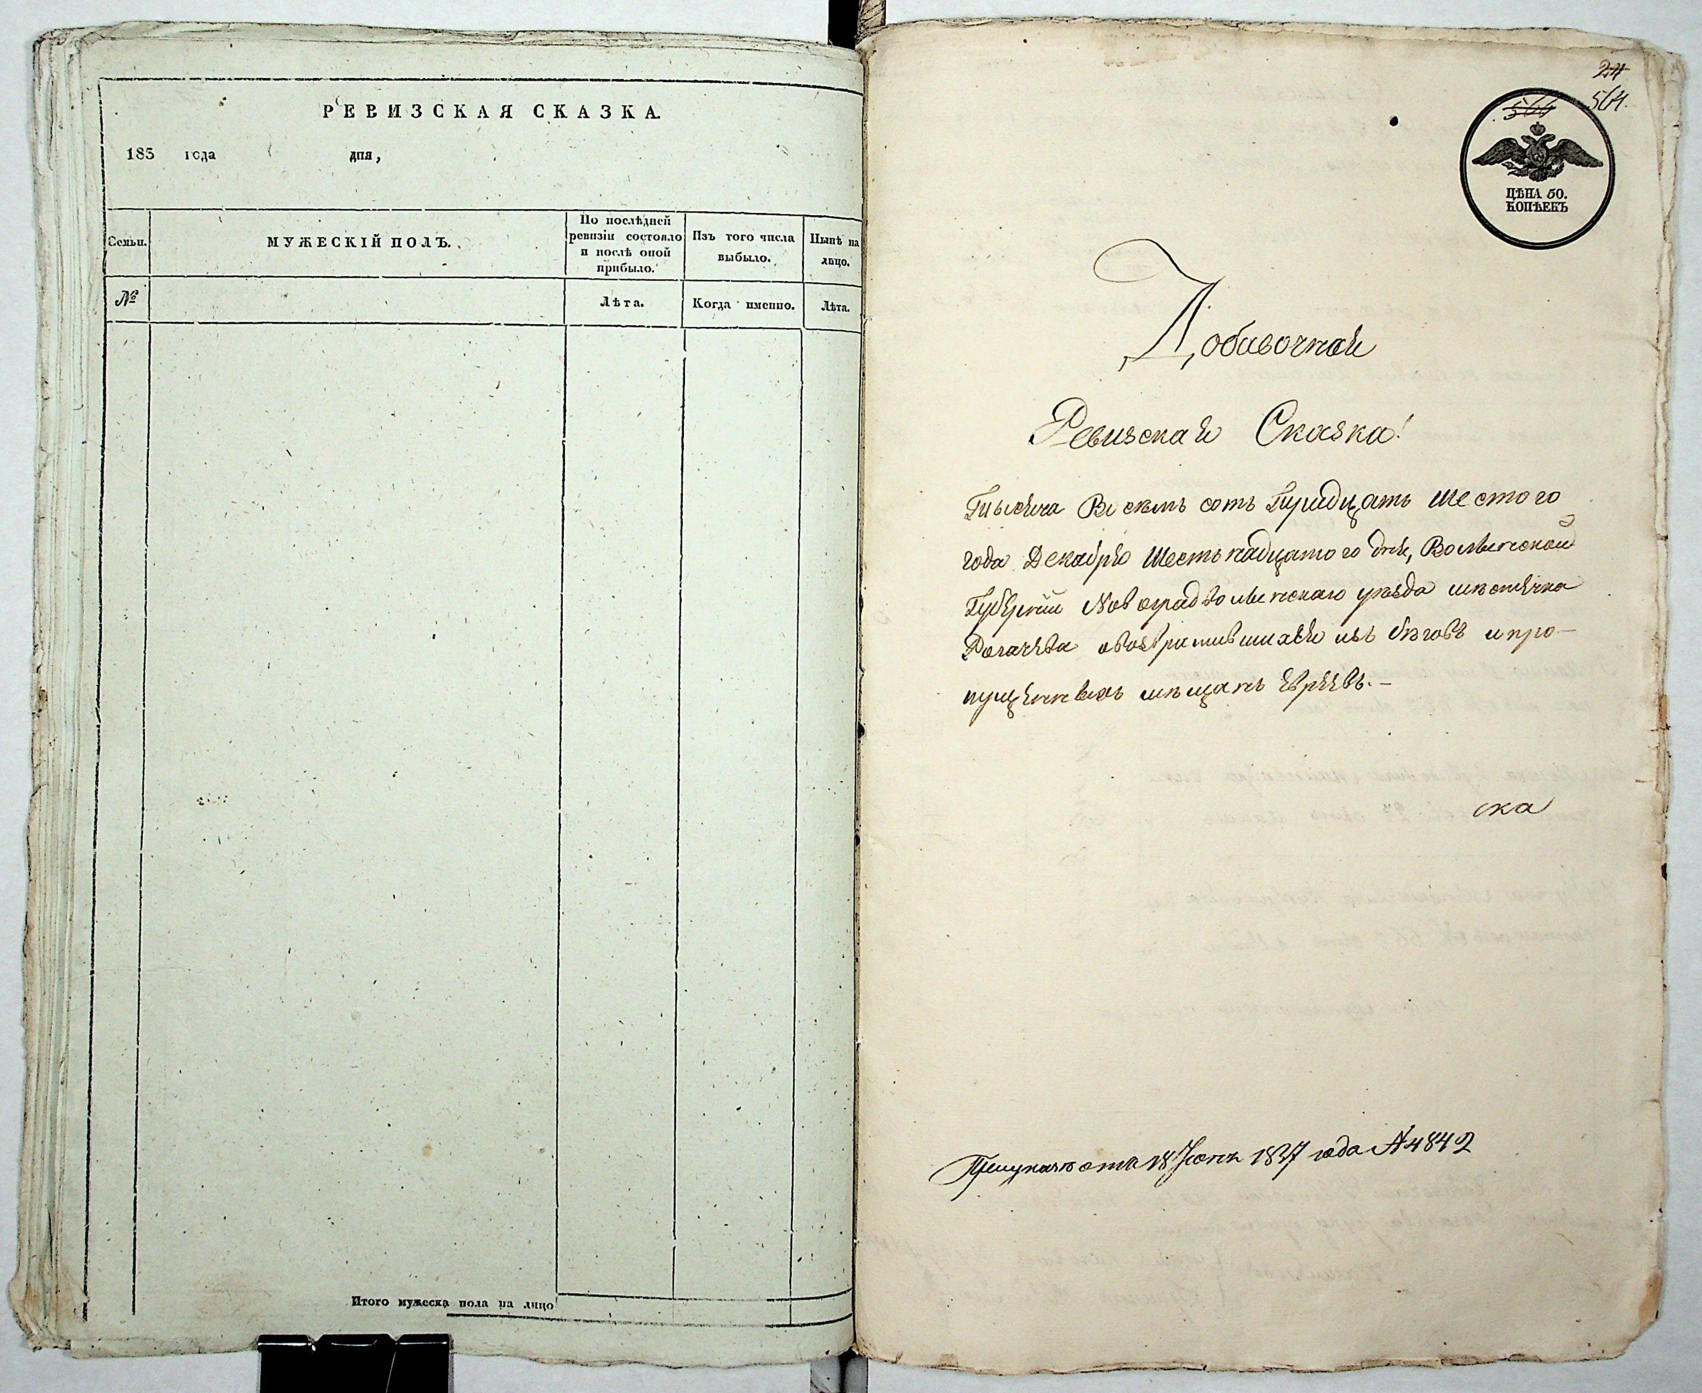 РЕВИЗСКАЯ СКАЗКА.
183 года дня,
Семьи.
МУЖЕСКІЙ ПОЛЪ.
По послѣдней
ревизіи состояло
и послѣ оной
прибыло.
Изъ того числа
выбыло.
Нынѣ на
лицо.
№
Лѣта.
Когда именно.
Лѣта.
Итого мужеска пола на лицо
24
564
564.
ЦѢНА 50.
КОПѢЕКЪ
Добавочная
Ревизская Сказка!
Тысяча Восемь сотъ Тридцать Шестого
года Декабря Шестьнадцатого дня, Волынской
Губерніи Новоградволынскаго уѣзда мѣстечка
Рогачева овозвратившихся изъ бѣговъ и про-
пущенныхъ мѣщанъ Евреевъ.-
ска
1837 года №4842